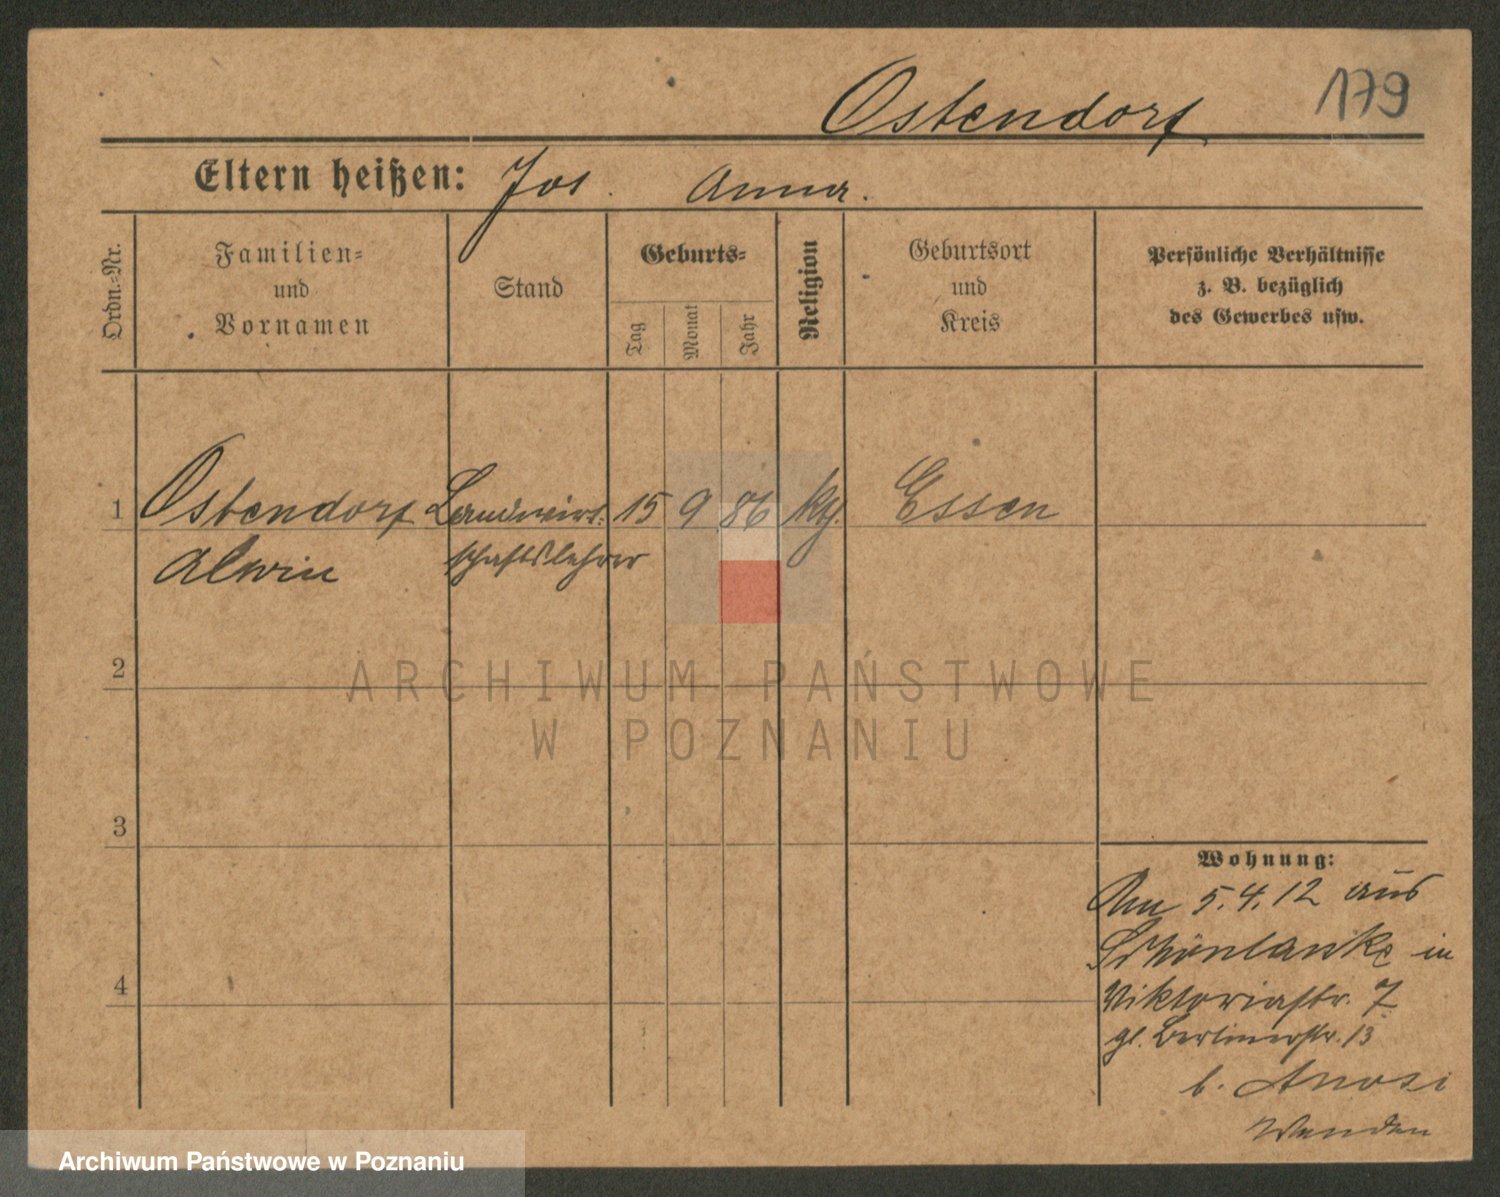 Ostendorf 179
Eltern heißen: Jos. Anna.
Ordn.-Nr.
Familien-
und
Vornamen
Stand
Geburts-
Tag
Monat
Jahr
Religion
Geburtsort
und
Kreis
Persönliche Verhältnisse
z. B. bezüglich
des Gewerbes usw.
1 Ostendorf Landwirt- 15 9 86 ktf. Essen
Alwin schaftslehrer
2
3
4
Wohnung:
Am 5.4.12 aus
Schönlanke in
Viktoriastr. 7
gl. Berlinerstr. 13
b.
Wenden
ARCHIWUM PAŃSTWOWE
W POZNANIU
Archiwum Państwowe w Poznaniu